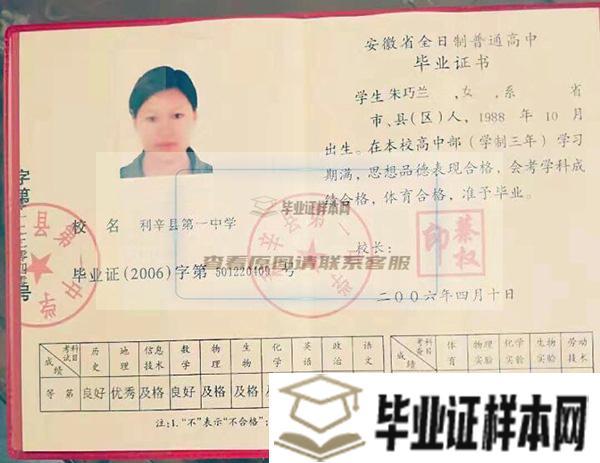 安徽省全日制普通高中
毕业证书
学生 朱巧兰 ,女 ,系 省
市、县(区)人, 1988 年 10 月
出生。在本校高中部(学制三年)学习
期满,思想品德表现合格,会考学科成
绩合格,体育合格,准予毕业。
校长:
秦权印
二〇〇六年四月十日
校 名 利辛县第一中学
毕业证(2006)字第 501220409 号
毕业证样本网
查看原图请联系客服
考试科目 历史 地理 信息技术 数学 物理 生物 化学 英语 政治 语文
成绩
等 第 良好 优秀 及格 良好 及格 及格
考查科目 体育 物理实验 化学实验 生物实验 劳动技术
成绩
注:1.“不”表示“不合格”;
毕业证样本网